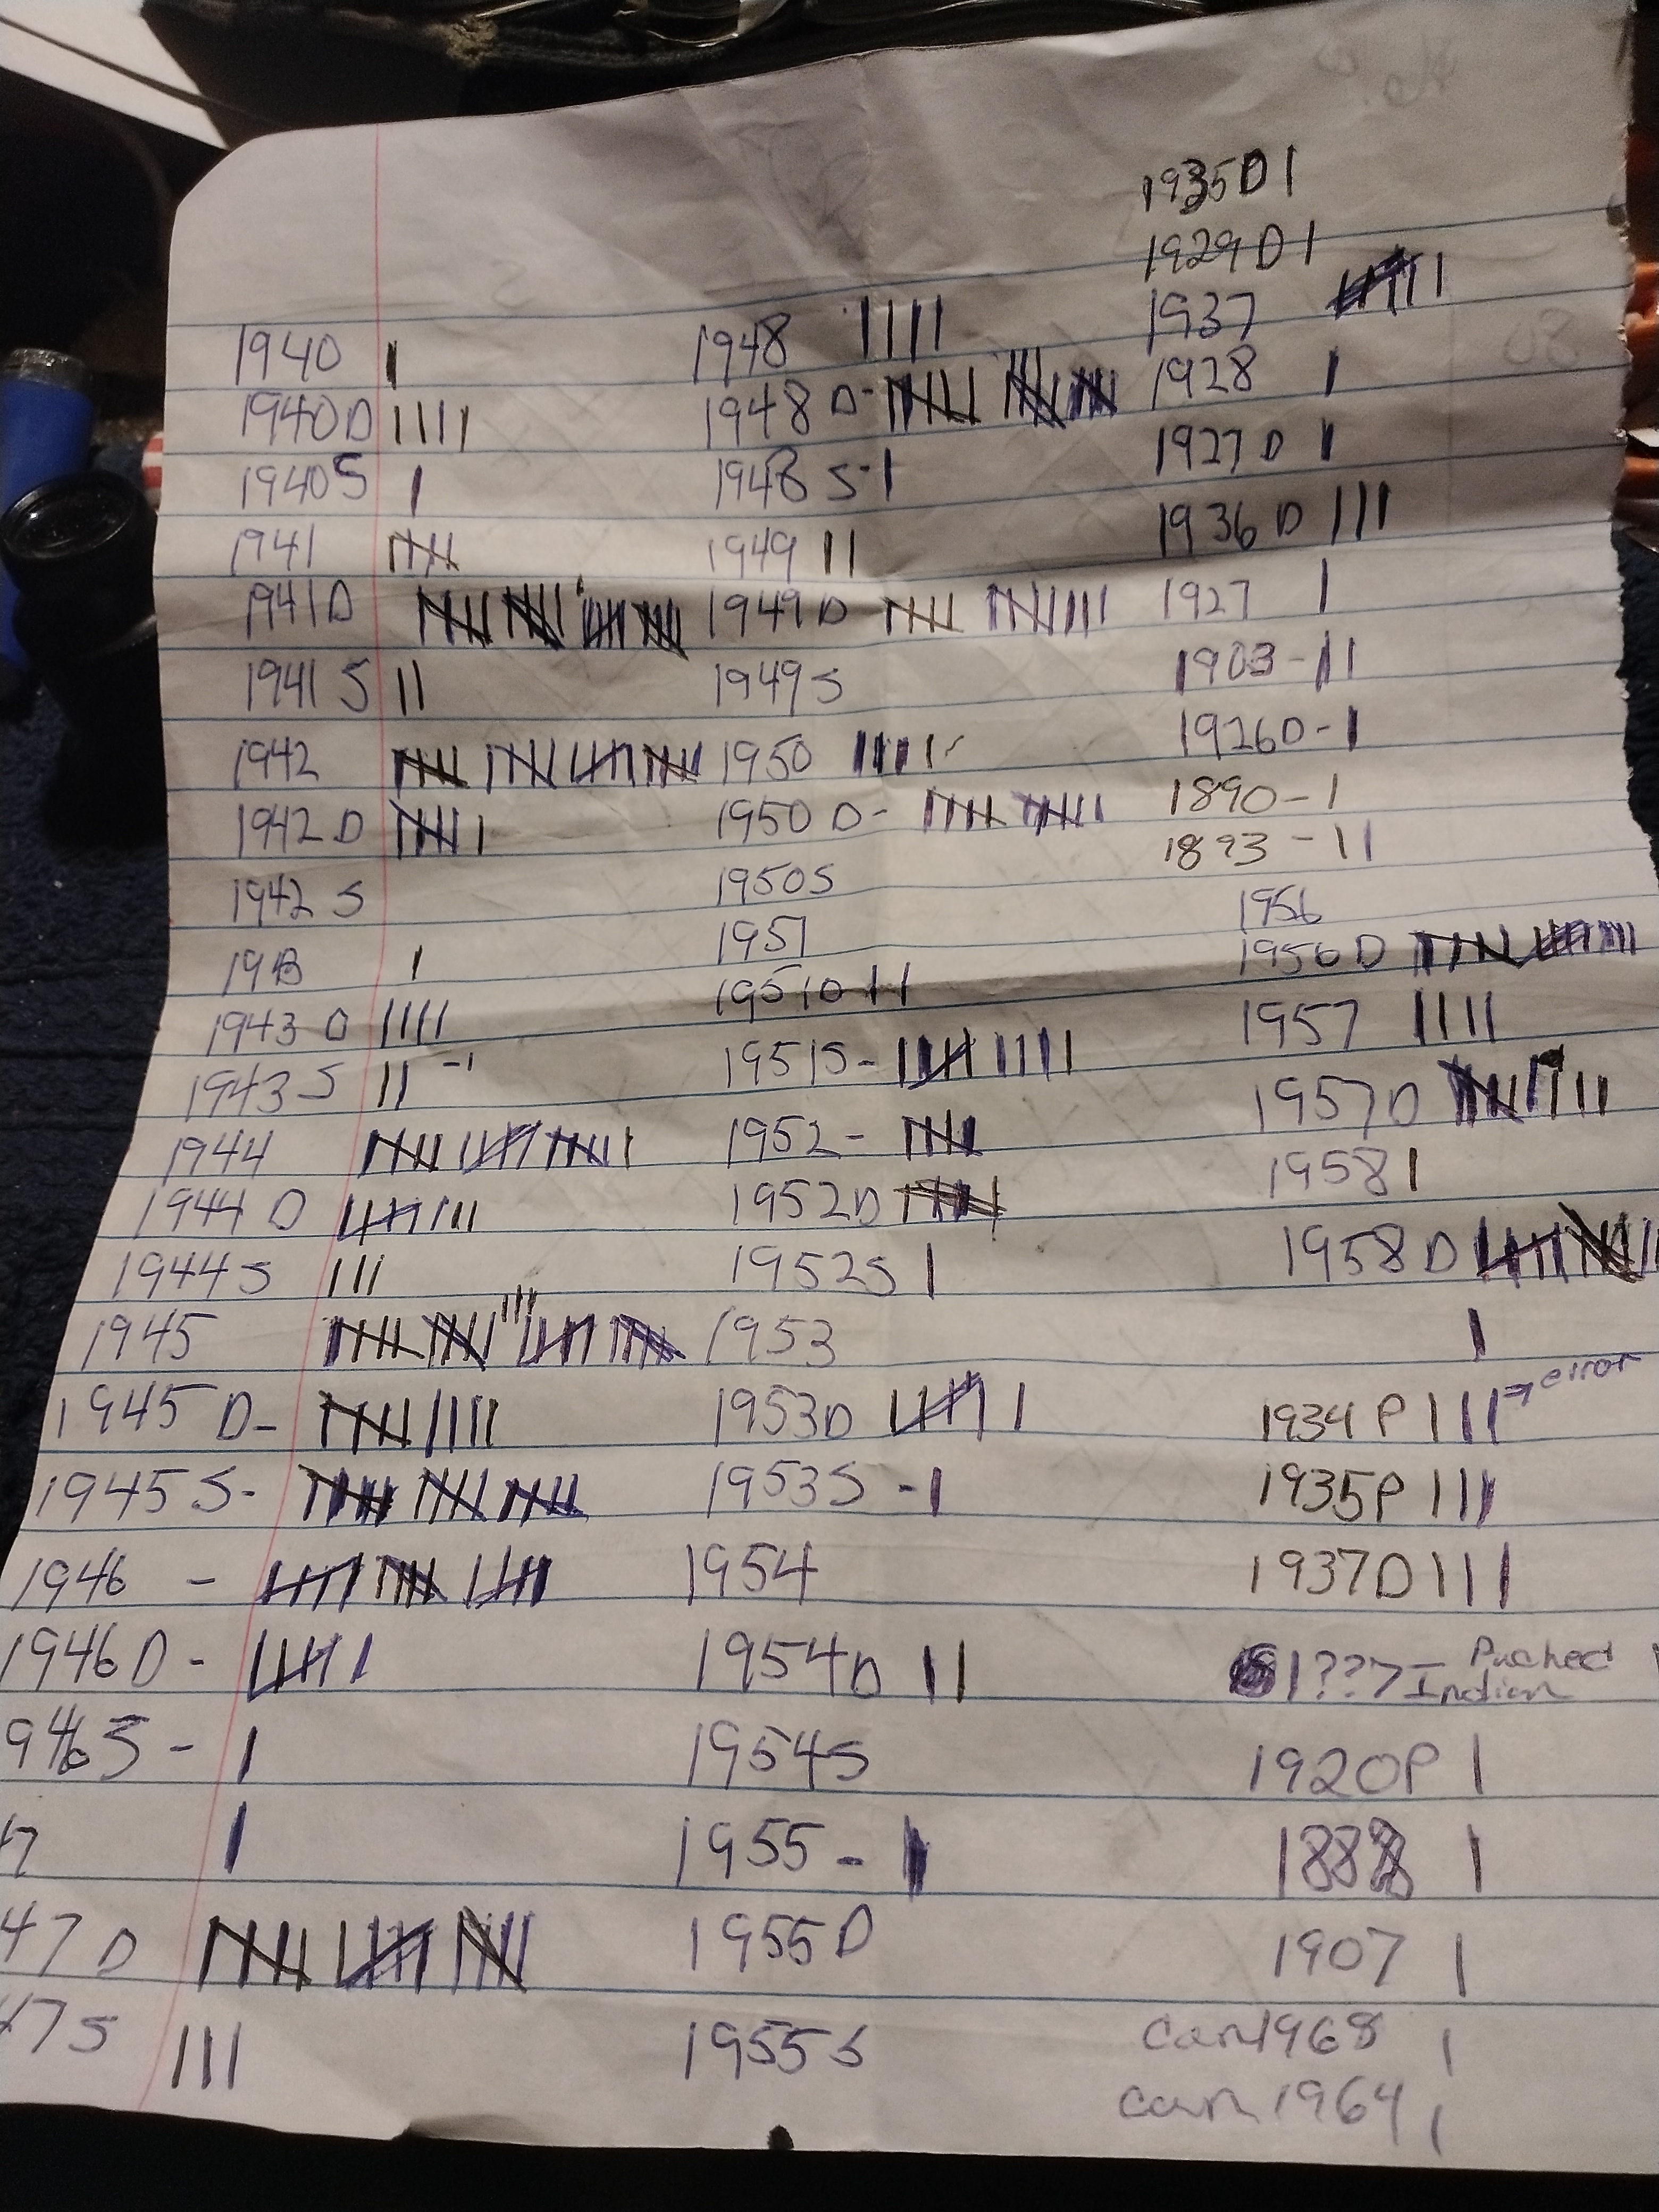 1940 |
1940D ||||
1940S |
1941
1941D
1941 S ||
1942
1942D
1942 S
1943 |
1943 D ||||
1943 S || -1
1944
1944 D
1944 S |||
1945
1945 D-
1945 S-
1946 -
1946 D -
946 S - |
47 |
47 D
47 S |||
1948 ||||
1948 D-
1948 S-|
1949 ||
1949 D
1949 S
1950
1950 D-
1950S
1951
1951D ||
1951S-
1952 -
1952D
1952S |
1953
1953D
1953S -|
1954
1954D ||
1954S
1955 -
1955D
1955S
1935D |
1929D |
1937
1928 |
1927 D |
1936 D |||
1927 |
1903 - ||
1926D - |
1890 - |
1893 - ||
1956
1956 D
1957 ||||
1957D
1958 |
1958 D
|
1934 P ||| → error
1935P |||
1937D |||
1??? - Puched |
Indian
1920P |
1888 |
1907 |
can 1968 |
can 1964 |